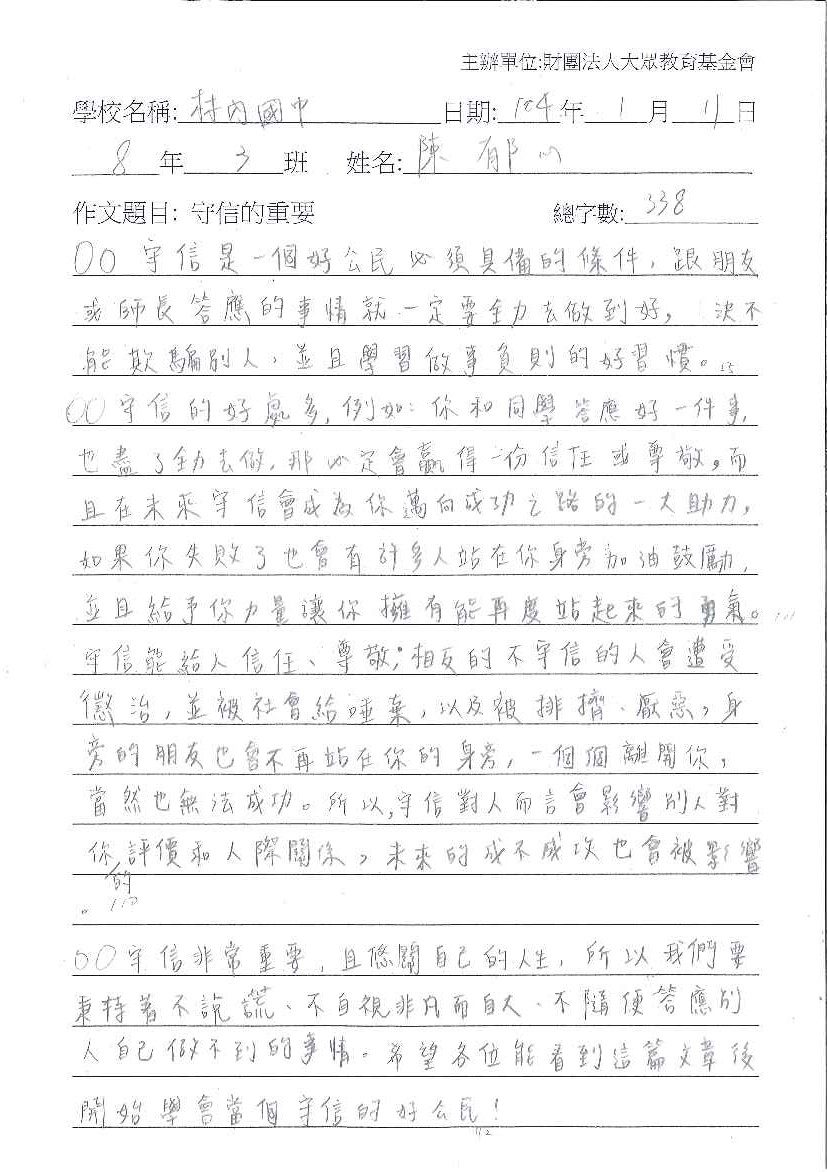 主辦單位:財團法人大眾教育基金會
學校名稱: 村內國中 日期: 104 年 1 月 11 日
8 年 3 班 姓名: 陳郁心
作文題目: 守信的重要 總字數: 338
○○守信是一個好公民必須具備的條件，跟朋友
或師長答應的事情就一定要全力去做到好， 決不
能欺騙別人，並且學習做事負則的好習慣。
○○守信的好處多，例如：你和同學答應好一件事，
也盡了全力去做，那必定會贏得一份信任或尊敬，而
且在未來守信會成為你邁向成功之路的一大助力，
如果你失敗了也會有許多人站在你身旁加油鼓勵，
並且給予你力量讓你擁有能再度站起來的勇氣。
守信能給人信任、尊敬；相反的不守信的人會遭受
懲治，並被社會給唾棄，以及被排擠、厭惡，身
旁的朋友也會不再站在你的身旁，一個個離開你，
當然也無法成功。所以，守信對人而言會影響別人對
你的評價和人際關係，未來的成不成功也會被影響
。 110
○○守信非常重要，且悠關自己的人生，所以我們要
秉持著不說謊、不自視非凡而自大、不隨便答應別
人自己做不到的事情。希望各位能看到這篇文章後
開始學會當個守信的好公民！